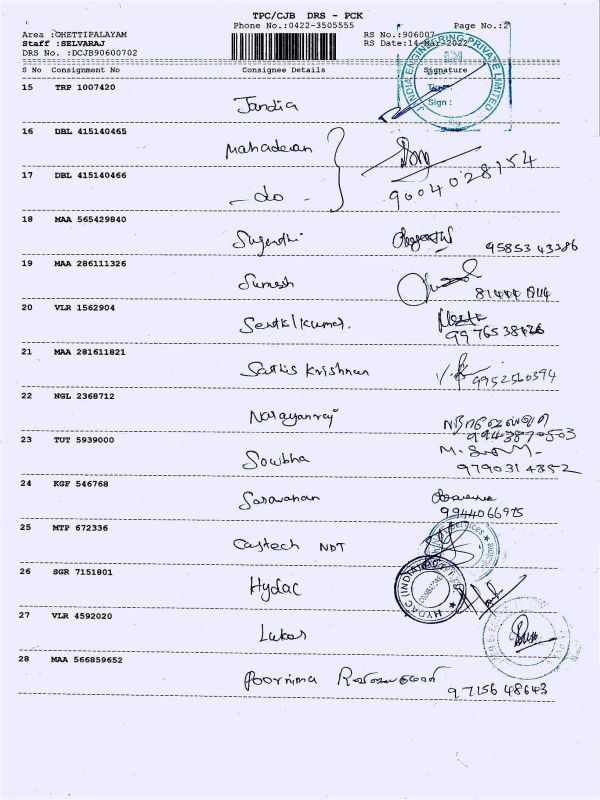 TPC/CJB DRS - PCK
Phone No.:0422-3505555 Page No.:2
Area :OHETTIPALAYAM RS No.:906007
Staff :SELVARAJ RS Date:14-Mar-2022
DRS No.:DCJB90600702
S No Consignment No Consignee Details Signature
15 TRP 1007420 Jandia
ENGINEERING PRIVATE LIMITED
Sign :
16 DBL 415140465 Mahadevan
17 DBL 415140466 - do - 9004028154
18 MAA 565429840 Sugandhi 95853 43386
19 MAA 286111326 Sumesh
20 VLR 1562904 Senthilkumar.
21 MAA 281611821 Sathis Krishnan 9952560394
22 NGL 2368712 Narayanraj
23 TUT 5939000 Sowbha
9790314852
24 KGF 546768 Saravanan
9944066975
25 MTP 672336 Castech NDT
26 SGR 7151801 Hydac
HYDAC INDIA
27 VLR 4592020 Lukas
28 MAA 566859652 Poornima
97156 48643